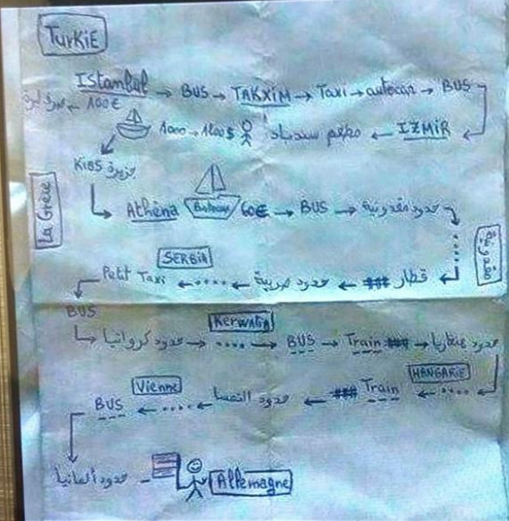 TURKIE
Istanbul → BUS → TAKXIM → Taxi → autocar → BUS
100€ ←
IZMIR ← مطعم سندباد 1000 → 1200$
جزيرة KIOS
La Grèce
Athéna Bateau 60€ → BUS → حدود مقدونية
مقدونية
قطار ### ← حدود صربية ← .... ← Petit Taxi
SERBIA
BUS
حدود كرواتيا → .... → BUS → Train ### حدود هنغاريا
KERWATIA
HANGARIE
.... Train ### ← حدود النمسا ← .... ← BUS
Vienne
حدود ألمانيا
Allemagne